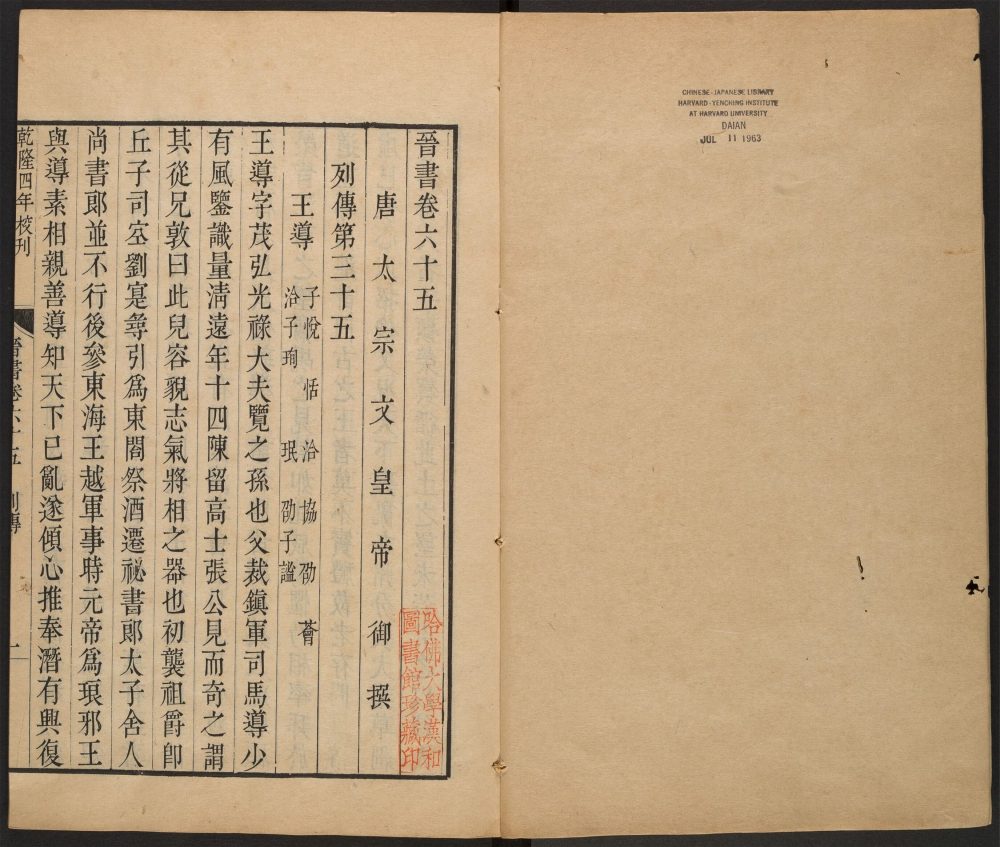 CHINESE-JAPANESE LIBRARY
HARVARD-YENCHING INSTITUTE
AT HARVARD UNIVERSITY
DAIAN
JUL 11 1963
晉書卷六十五
唐太宗文皇帝御撰
列傳第三十五
王導 子悅 恬 洽 協 劭 薈
洽子珣 珉 劭子謐
王導字茂弘光祿大夫覽之孫也父裁鎮軍司馬導少
有風鑒識量清遠年十四陳留高士張公見而奇之謂
其從兄敦曰此兒容貌志氣將相之器也初襲祖爵卽
丘子司空劉寔尋引爲東閤祭酒遷祕書郞太子舍人
尚書郞並不行後參東海王越軍事時元帝爲琅邪王
與導素相親善導知天下已亂遂傾心推奉潛有興復
乾隆四年校刊
晉書卷六十五 列傳 一
哈佛大學漢和
圖書館珍藏印